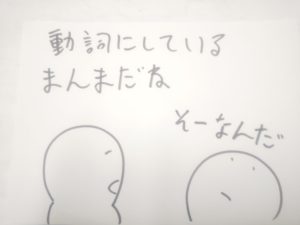 動詞にしている
まんまだね
そーなんだ